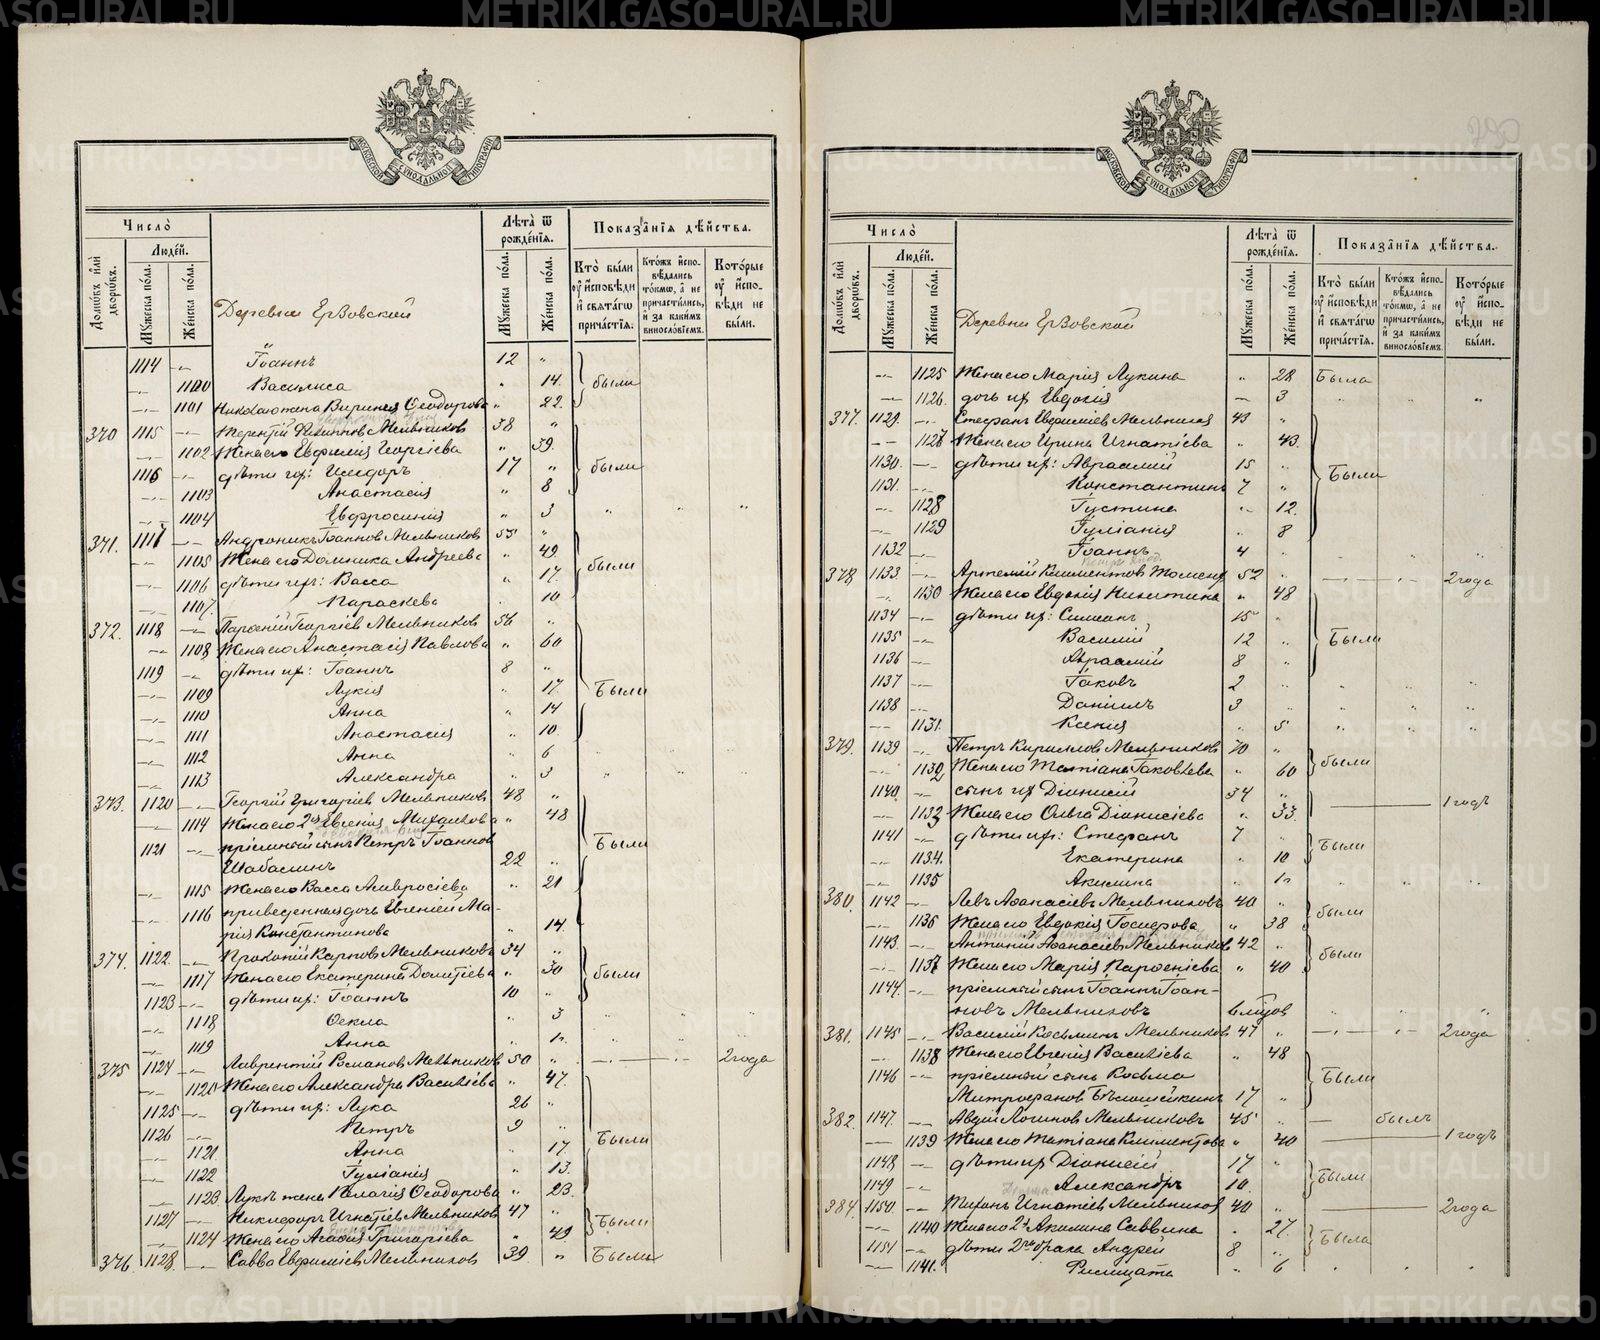 METRIKI.GASO-URAL.RU
МОСКОВСКОЙ СѴНОДАЛЬНОЙ ТИПОГРАФІИ
Число̀
Людéй.
Домѡвъ и҆лѝ дворѡвъ.
Мꙋжеска пóла.
Жéнска пóла.
Деревни Ерзовской
Лѣта̀ ѿ рождéнїѧ.
Мꙋжеска пóла.
Жéнска пóла.
Показа̑нїѧ дѣ́йства.
Кто̀ бы́ли ᲂу҆ и҆сповѣди и҆ свѧта́гѡ прича́стїѧ.
Кто́жъ и҆спо-вѣдались то́кмѡ, а҆ не причасти́лись, и҆ за каки́мъ винослóвїемъ.
Котóрые ᲂу҆ и҆спо-вѣди не бы́ли.
1114 Іоаннъ 12 "
1100 Василиса " 14. были
1101 Николаю жена Виринея Ѳеодорова " 22.
370 1115 Терентій Филиппов Мельников 38 "
1102 Жена его Евфимія Георгіева " 39.
1116 дѣти их: Исидоръ 17 " были
1103 Анастасія " 8
1104 Евфросинія " 3
371. 1117 Андроникъ Іоаннов Мельников 55 "
1105 Жена его Домника Андреева " 49. были
1106 дѣти их: Васса " 17.
1107. Параскева 10
372. 1118 Парѳеній Георгіев Мельников 56 "
1108 Жена его Анастасія Павлова " 60
1119 дѣти их: Іоаннъ 8 "
1109 Лукія " 17. Были
1110 Анна " 14
1111 Анастасія " 10.
1112 Анна " 6
1113 Александра " 3
373. 1120 Георгій Григоріев Мельников 48 "
1114 Жена его 2я Евгенія Михайлова " 48
1121 пріемный сынъ Петръ Іоаннов Были
Шабалинъ 22 "
1115 Жена его Васса Амвросіева " 21
1116 приведенная дочь Евгеніей Ма-
рія Константинова " 14.
374. 1122. Прокопій Карпов Мельниковъ 34 "
1117 Жена его Екатерина Дометіева " 30 были
1123 дѣти их: Іоаннъ 10 "
1118 Ѳекла " 3
1119 Анна " 1
375 1124 Лаврентій Романов Мельников 50 " 2 года
1120 Жена его Александра Василіева " 47.
1125 дѣти их: Лука 26 "
1126 Петръ 9 "
1121 Анна " 17. Были
1122 Іуліанія " 13.
1123 Лукѣ жена Пелагія Ѳеодорова " 23.
1127 Никифоръ Игнатіев Мельников 47 "
1124 Жена его Агафія Григоріева " 49 Были
376. 1128. Савва Евфиміев Мельников 39 " Были
МОСКОВСКОЙ СѴНОДАЛЬНОЙ ТИПОГРАФІИ
Число̀
Людéй.
Домѡвъ и҆лѝ дворѡвъ.
Мꙋжеска пóла.
Жéнска пóла.
Деревни Ерзовской
Лѣта̀ ѿ рождéнїѧ.
Мꙋжеска пóла.
Жéнска пóла.
Показа̑нїѧ дѣ́йства.
Кто̀ бы́ли ᲂу҆ и҆сповѣди и҆ свѧта́гѡ прича́стїѧ.
Кто́жъ и҆спо-вѣдались то́кмѡ, а҆ не причасти́лись, и҆ за каки́мъ винослóвїемъ.
Котóрые ᲂу҆ и҆спо-вѣди не бы́ли.
1125 Жена его Марія Лукина " 28 Была
1126. дочь их Евдокія 3
377. 1129. Стефанъ Евфиміев Мельников 43 "
1127 Жена его Ирина Игнатіева " 43.
1130. дѣти их: Авраамій 15 Были
1131. Константинъ 7 "
1128 Іустина 12.
1129 Іуліанія 8
1132 Іоаннъ 4
378. 1133. Артемій Климентов 52 2 года
1130 Жена его Евдокія Никитина " 48
1134 дѣти их: Симеонъ 15
1135 Василій 12 " Были
1136 Авраамій 8
1137 Іаковъ 2
1138 Даніилъ 3
1131. Ксенія 5
379. 1139 Петръ Кирилловъ Мельниковъ 70 "
1132 Жена его Татіана Іаковлева " 60 были
1140. сынъ их Діонисій 34 " 1 годъ
1133 Жена его Ольга Діонисіева " 33.
1141 дѣти их: Стефанъ 7 "
1134. Екатерина " 10 были
1135 Акилина 1
380. 1142 Левъ Аѳанасіевъ Мельниковъ 40 "
1136 Жена его Евдокія " 38 были
1143. Антоній Аѳанасіевъ Мельников 42 "
1137 Жена его Марія Парѳеніева " 40 были
1144. пріемный сынъ Іоаннъ Іоан-
новъ Мельниковъ
381. 1145 Василій Косьминъ Мельников 47 " 2 года
1138 Жена его Евгенія Василіева " 48
1146 пріемный сынъ Косьма Были
Митрофанов 17 "
382. 1147. Авдій Логинов Мельниковъ 45 " былъ
1139 Жена его Татіана Климентова " 40 1 годъ
1148 дѣти их Діонисій 17 "
1149 Александръ 10 были
384. 1150. Тихонъ Игнатіев Мельников 40 " 2 года
1140 Жена его 2я Акилина Саввина 27. Была
1151 дѣти 2го брака Андрей 8
1141. " 6